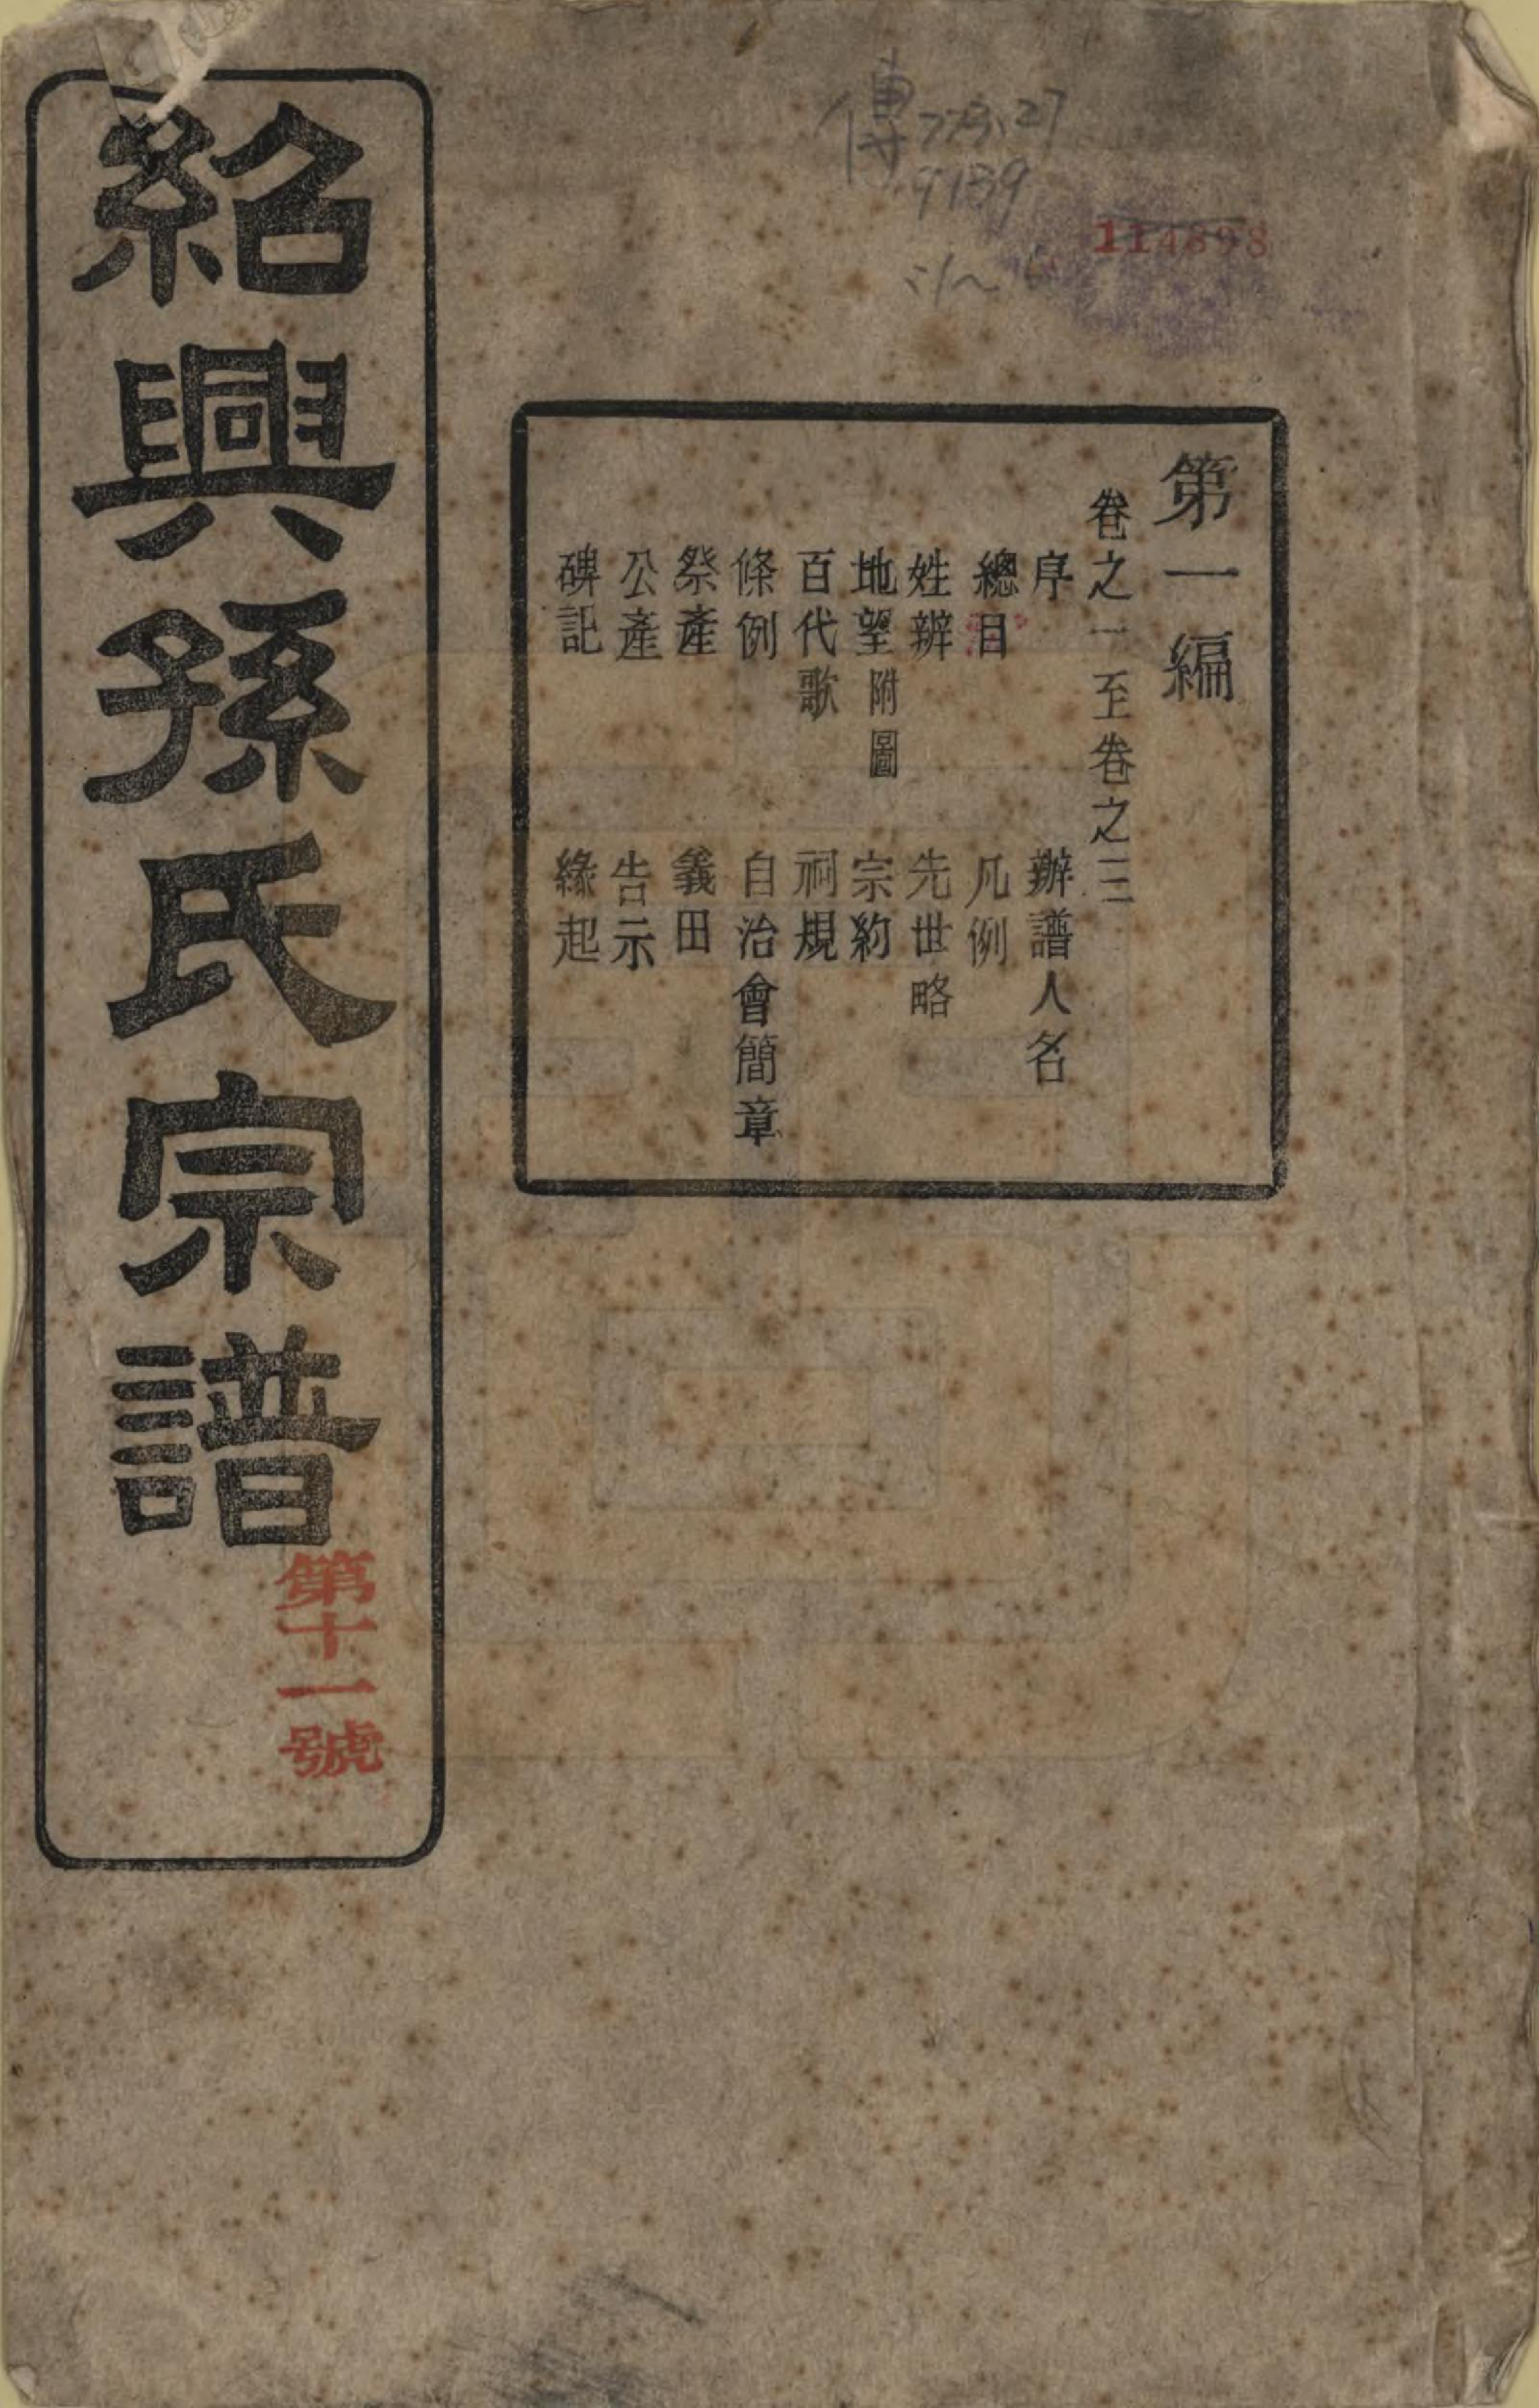 傳 773.27
9139
114898
第一編
卷之一至卷之三
序 辦譜人名
總目 凡例
姓辦 先世略
地望附圖 宗約
百代歌 祠規
條例 自治會簡章
祭產 義田
公產 告示
碑記 緣起
紹興孫氏宗譜
第十一號